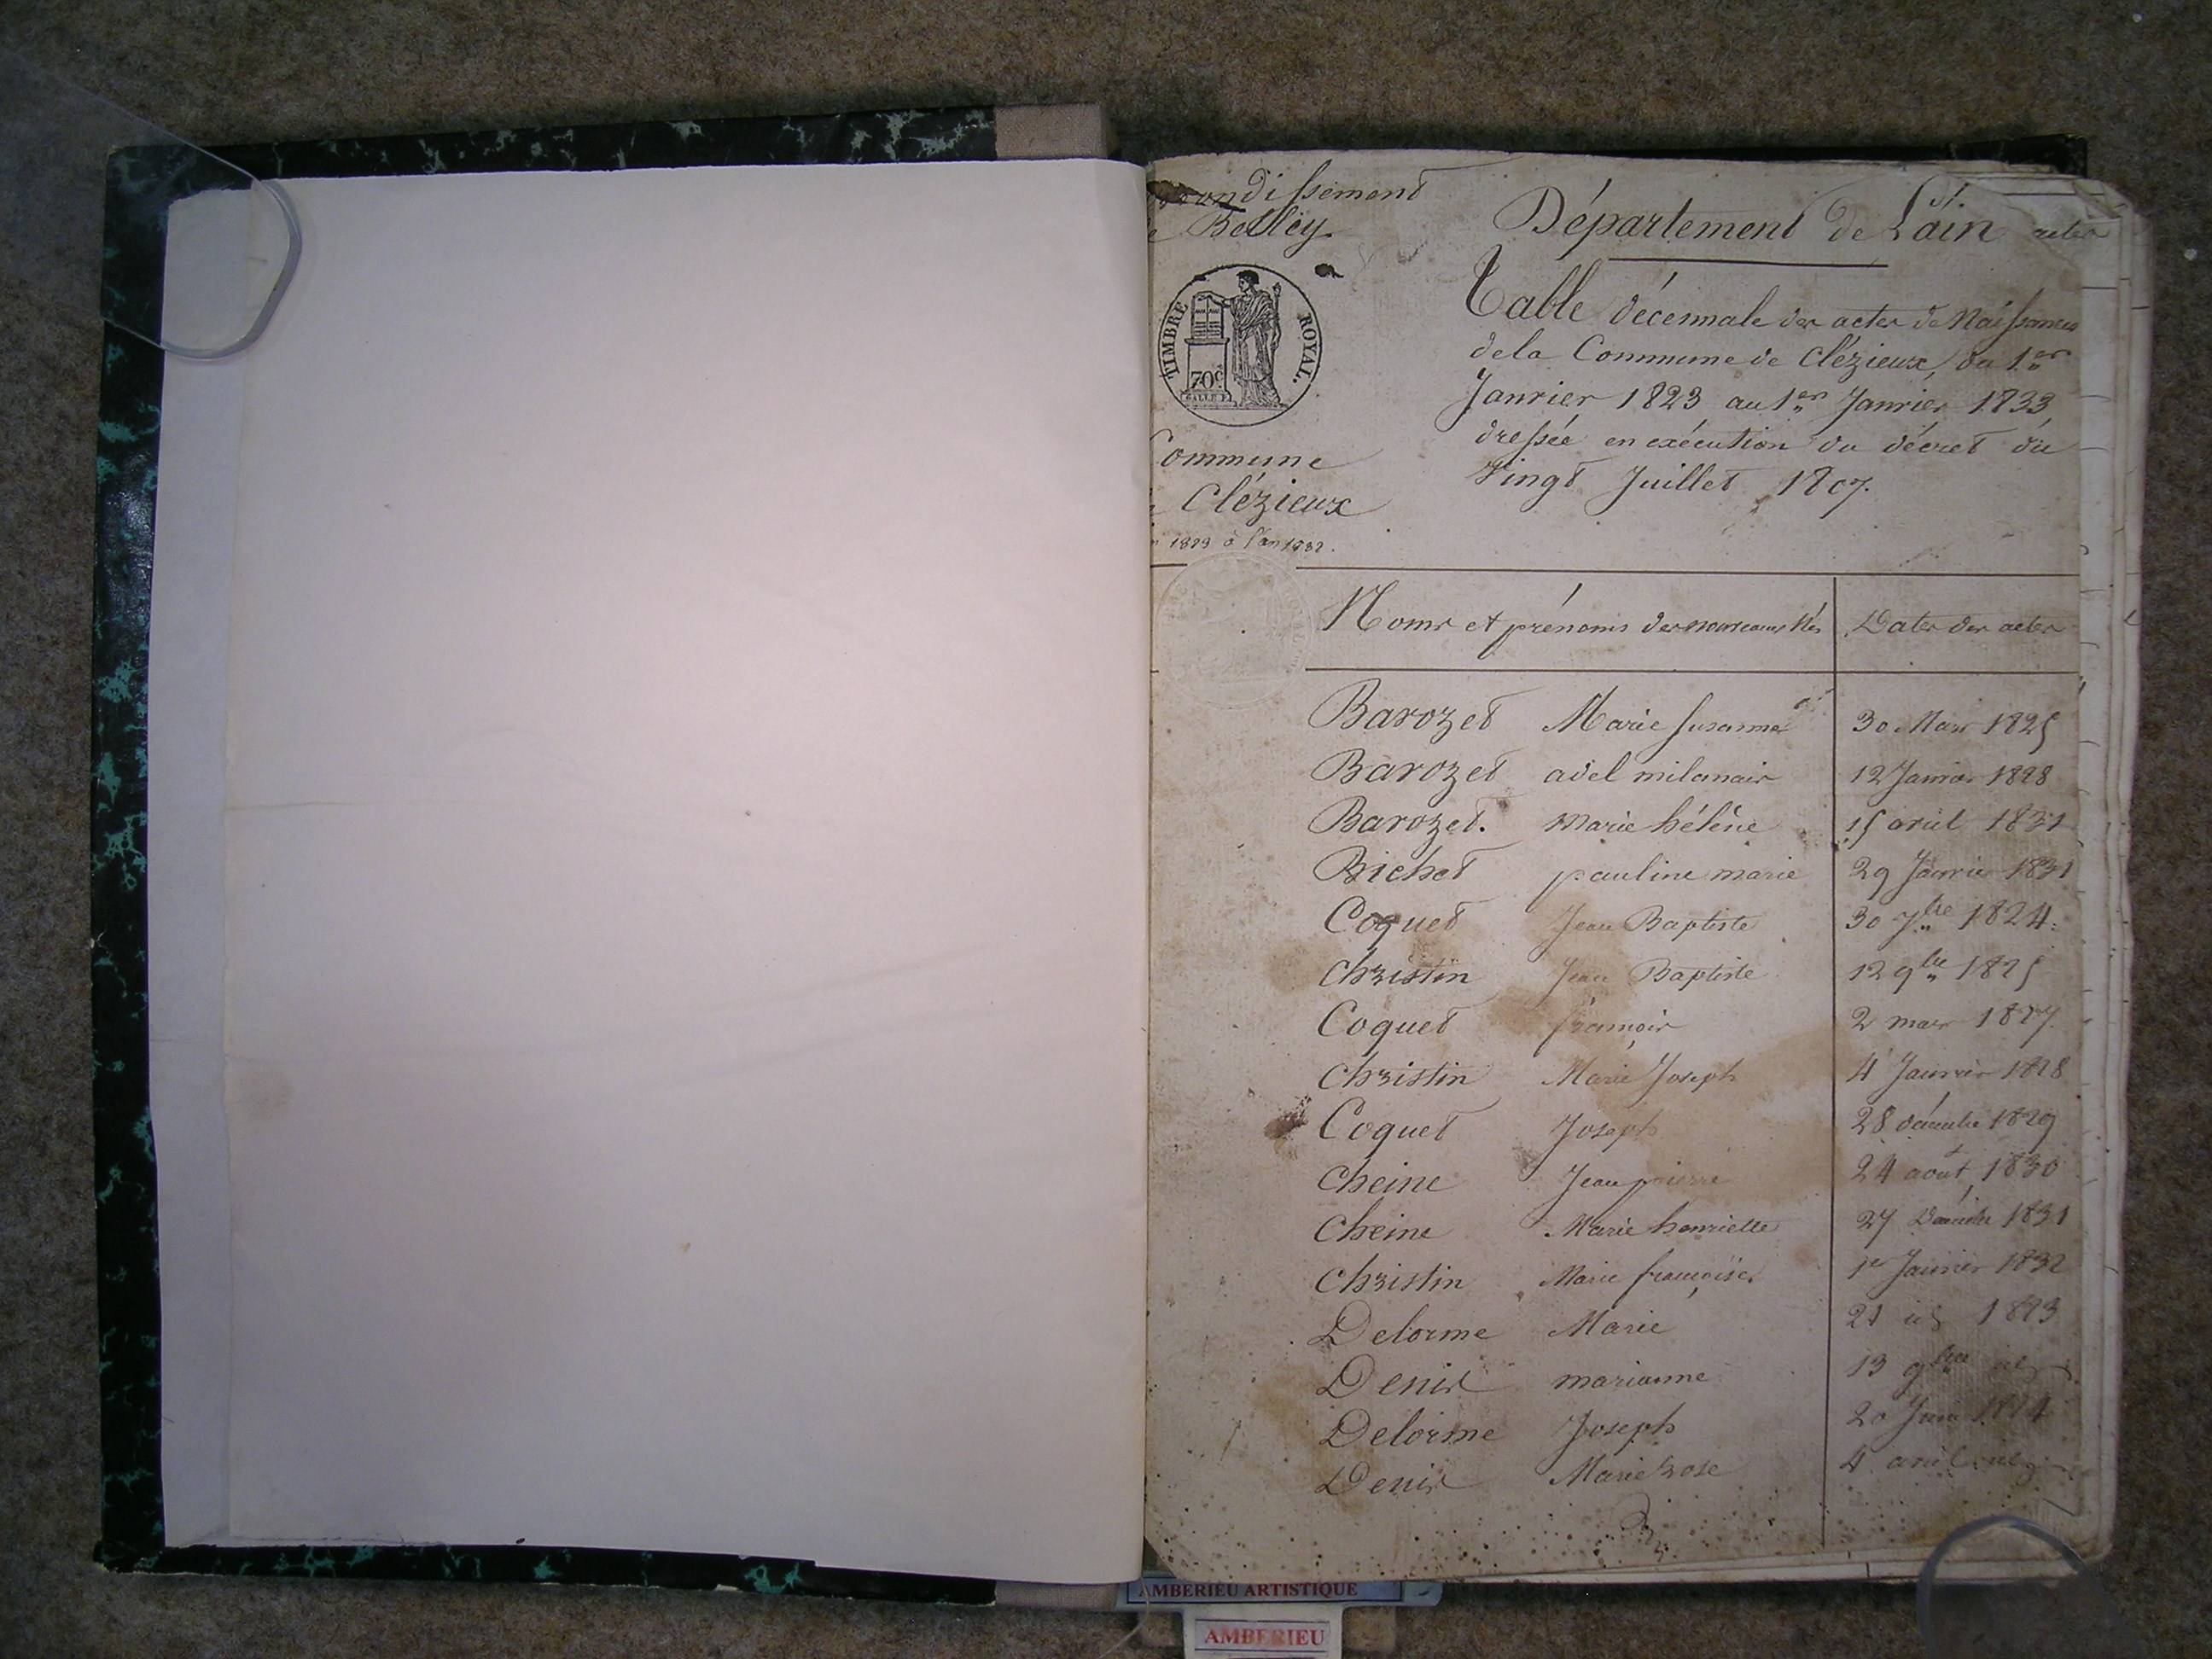 ondissement
Belley.
TIMBRE ROYAL.
70c
Commune
Clézieux
1823 à l'an 1832.
Département de Lain
Table décennale des actes de Naissances
de la Commune de Clézieux, du 1.er
Janvier 1823 au 1er Janvier 1833,
dressée en exécution du décret du
vingt Juillet 1807.
Noms et prénoms des nouveaux Nés Dates des actes
Barozet Marie Susanne 30 Mars 1825
Barozet adel 12 Janvier 1828
Barozet. Marie hélène 15 avril 1831
Bichet pauline marie 29 Janvier 1831
Coquet Jean Baptiste 30 7bre 1824.
Christin Jean Baptiste 12 9bre 1825
Coquet françois 2 mars 1827.
Christin Marie Joseph 4 Janvier 1828
Coquet Joseph 28 décembre 1829
Cheine Jean pierre 24 août 1830
Cheine Marie henriette 27 Décembre 1831
Christin Marie françoise. 1er Janvier 1832
Delorme Marie 21 id 1823
Denis marianne 13 9bre id
Delorme Joseph 20 Juin 1824
Denis Marie rose 4 avril id
AMBERIEU ARTISTIQUE
AMBERIEU